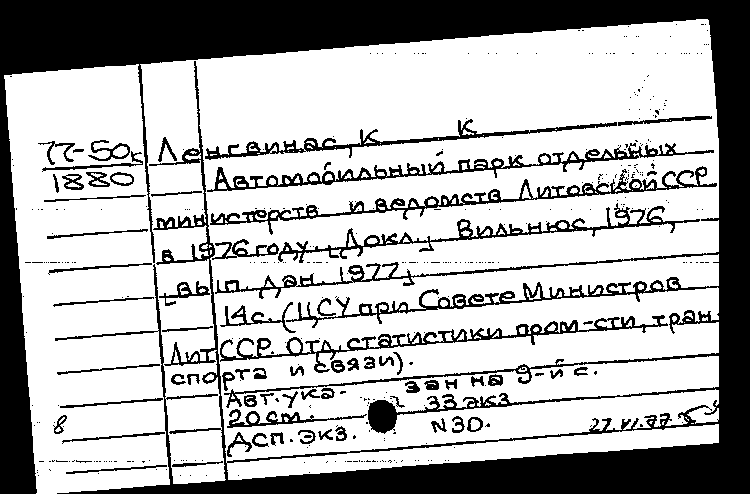 77-50к Ленгвинас, К К
1880 Автомобильный парк отдельных
министерств и ведомств Литовской ССР
в 1976 году. [Докл.] Вильнюс, 1976,
[вып. дан. 1977]
14 с. (ЦСУ при Совете Министров
Лит ССР. Отд. статистики пром-сти, тран-
спорта и связи).
Авт. ука- зан на 9-й с.
20 см. 33 экз
8 ДСП. Экз. N30. 27.VI.77